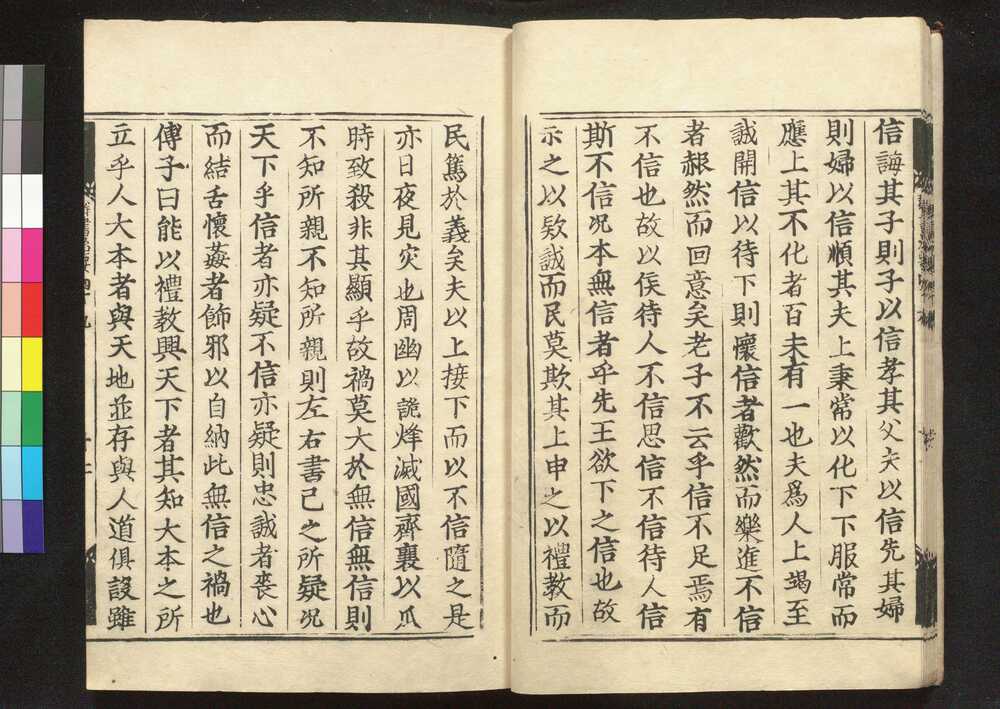 信誨其子則子以信孝其父夫以信先其婦
則婦以信順其夫上秉常以化下下服常而
應上其不化者百未有一也夫爲人上竭至
誠開信以待下則懷信者歡然而樂進不信
者赧然而回意矣老子不云乎信不足焉有
不信也故以信待人不信思信不信待人信
斯不信况本無信者乎先王欲下之信也故
示之以欵誠而民莫欺其上申之以禮教而
民篤於義矣夫以上接下而以不信隨之是
亦日夜見灾也周幽以詭烽滅國齊襄以瓜
時致殺非其顯乎故禍莫大於無信無信則
不知所親不知所親則左右書己之所疑况
天下乎信者亦疑不信亦疑則忠誠者喪心
而結舌懷姦者飾邪以自納此無信之禍也
傅子曰能以禮教興天下者其知大本之所
立乎人大本者與天地並存與人道俱設雖
群書治要四十九